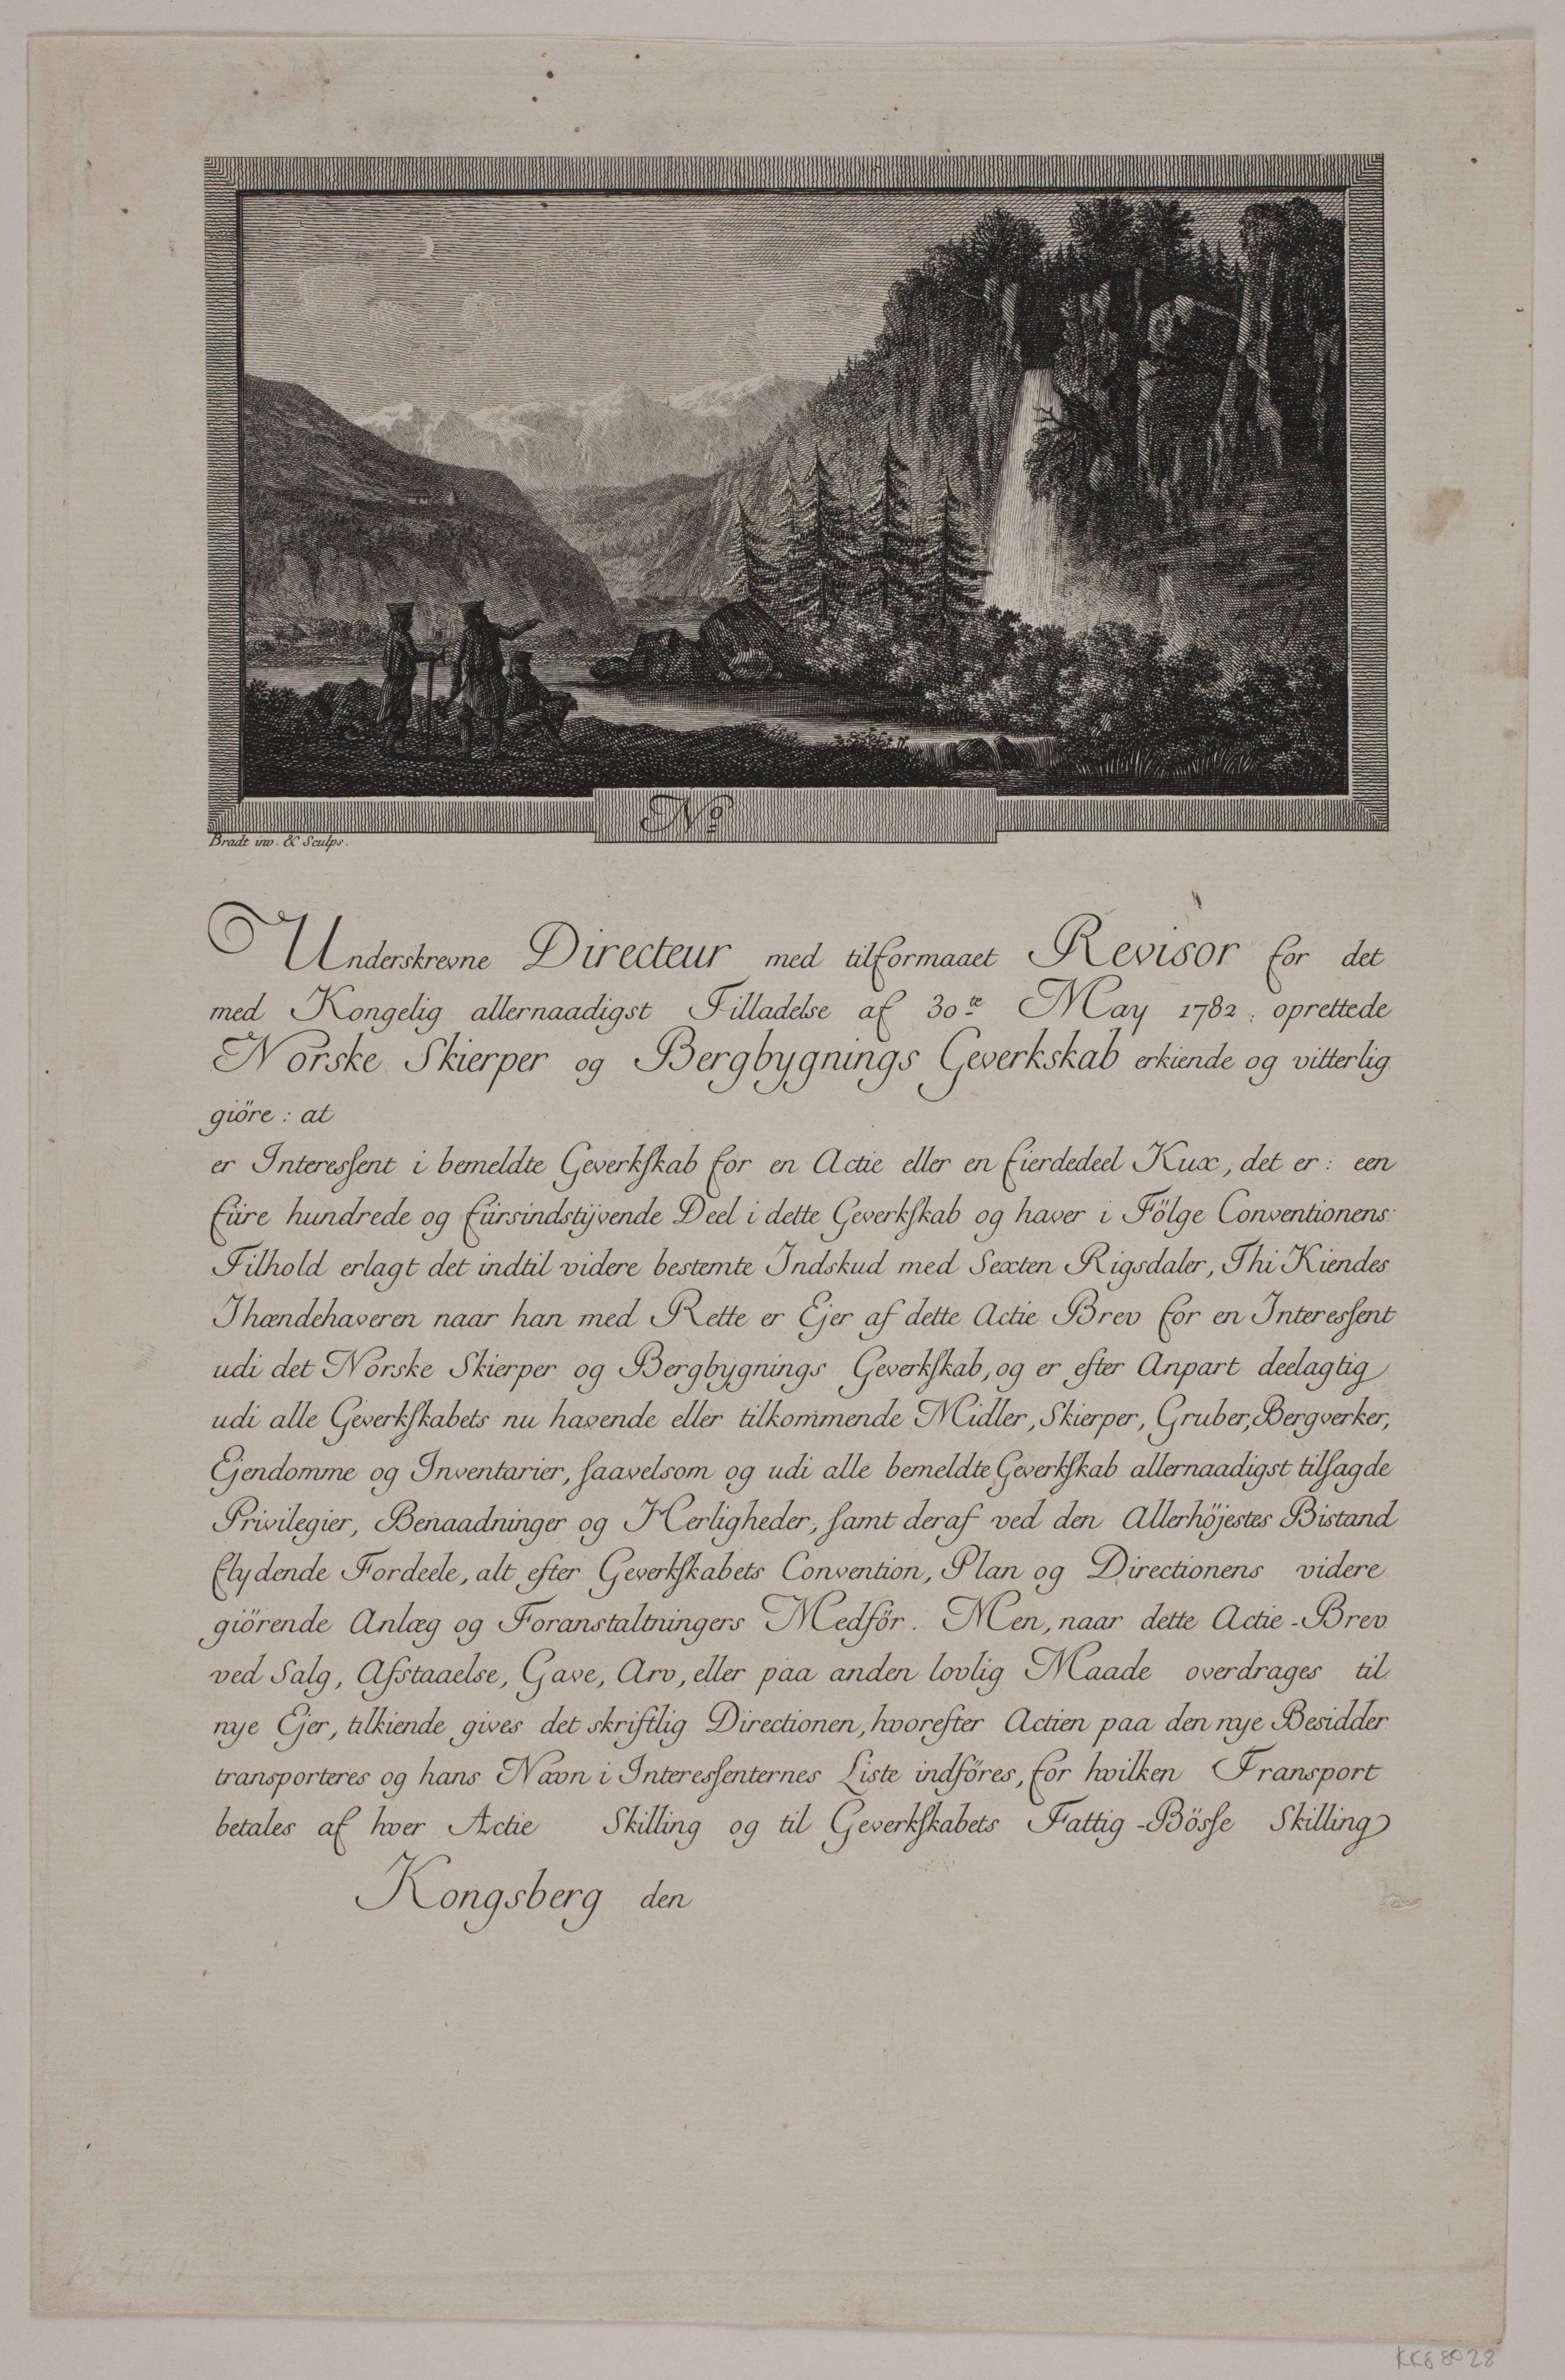 No
Bradt inv. & Sculps.
Underskrevne Directeur med tilformaaet Revisor for det
med Kongelig allernaadigst Tilladelse af 30te May 1782. oprettede
Norske Skierper og Bergbygnings Geverkskab erkiende og vitterlig
giöre: at
er Interesſent i bemeldte Geverkſkab for en Actie eller en fierdedeel Kux, det er: een
füre hundrede og fürsindstijvende Deel i dette Geverkſkab og haver i Fölge Conventionens
Tilhold erlagt det indtil videre bestemte Indskud med Sexten Rigsdaler, Thi Kiendes
Ihændehaveren naar han med Rette er Ejer af dette Actie Brev for en Interesſent
udi det Norske Skierper og Bergbygnings Geverkſkab, og er efter Anpart deelagtig
udi alle Geverkſkabets nu havende eller tilkommende Midler, Skierper, Gruber, Bergverker,
Ejendomme og Inventarier, ſaavelsom og udi alle bemeldte Geverkſkab allernaadigst tilſagde
Privilegier, Benaadninger og Herligheder, ſamt deraf ved den Allerhöjestes Bistand
flydende Fordeele, alt efter Geverkſkabets Convention, Plan og Directionens videre
giörende Anlæg og Foranstaltningers Medför. Men, naar dette Actie-Brev
ved Salg, Afstaaelse, Gave, Arv, eller paa anden lovlig Maade overdrages til
nye Ejer, tilkiende gives det skriftlig Directionen, hvorefter Actien paa den nye Besidder
transporteres og hans Navn i Interesſenternes Liste indföres, for hvilken Transport
betales af hver Actie Skilling og til Geverkſkabets Fattig-Bösſe Skilling
Kongsberg den
KKS 8028